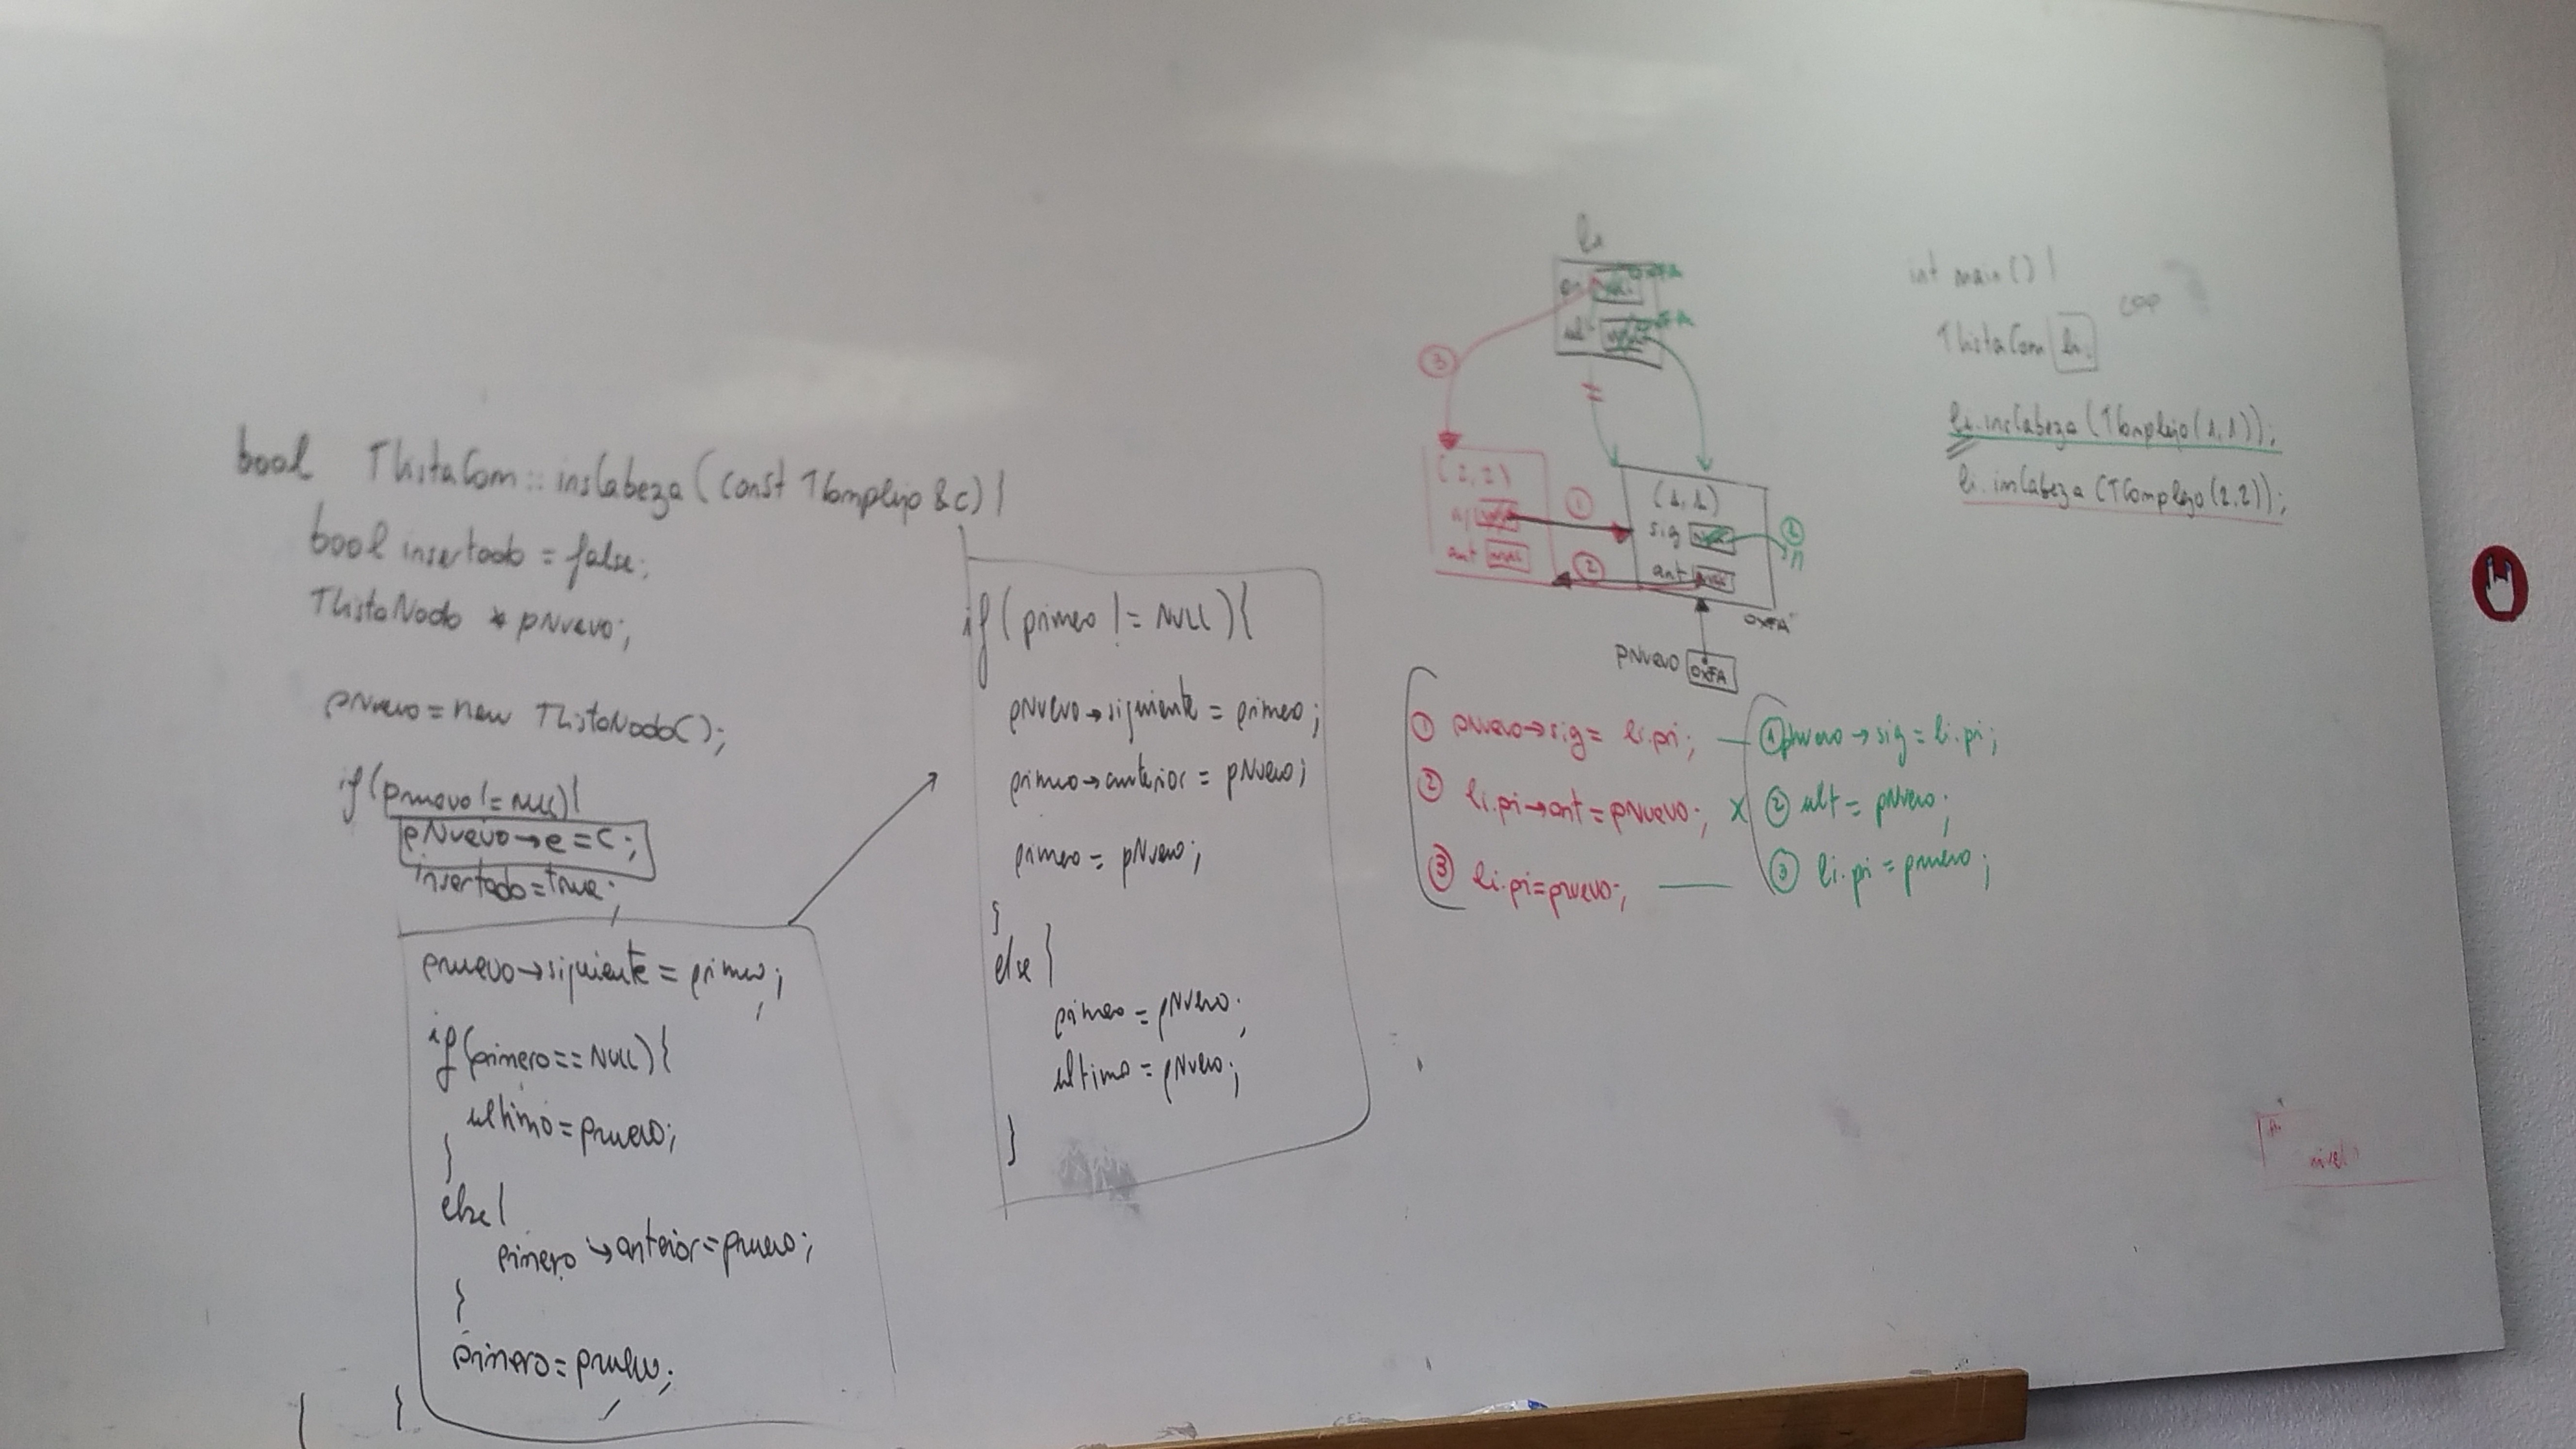 bool TListaCom::insCabeza(const TComplejo &c){
bool insertado = false;
TListaNodo *pNuevo;
pNuevo = new TListaNodo();
if(pNuevo != NULL){
pNuevo→e = C;
insertado = true;
pNuevo→siguiente = primero;
if(primero == NULL){
ultimo = pNuevo;
}
else{
primero→anterior = pNuevo;
}
primero = pNuevo;
}
if(primero != NULL){
pNuevo→siguiente = primero;
primero→anterior = pNuevo;
primero = pNuevo;
}
else{
primero = pNuevo;
ultimo = pNuevo;
}
li
pri
ult
③
(2,2)
ant NULL
①
②
(1,1)
sig NULL
ant NULL
0xFA
pNuevo 0xFA
① pNuevo→sig = li.pri;
② li.pri→ant = pNuevo;
③ li.pri = pNuevo;
① pNuevo→sig = li.pri;
X ② ult = pNuevo;
③ li.pri = pNuevo;
int main(){
TListaCom li;
li.insCabeza(TComplejo(1,1));
li.insCabeza(TComplejo(2,2));